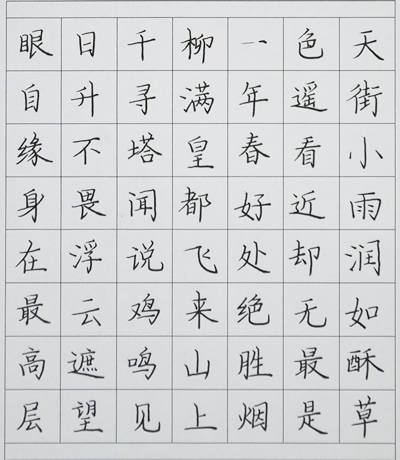 天街小雨润如酥草
色遥看近却无最是
一年春好处绝胜烟
柳满皇都飞来山上
千寻塔闻说鸡鸣见
日升不畏浮云遮望
眼自缘身在最高层